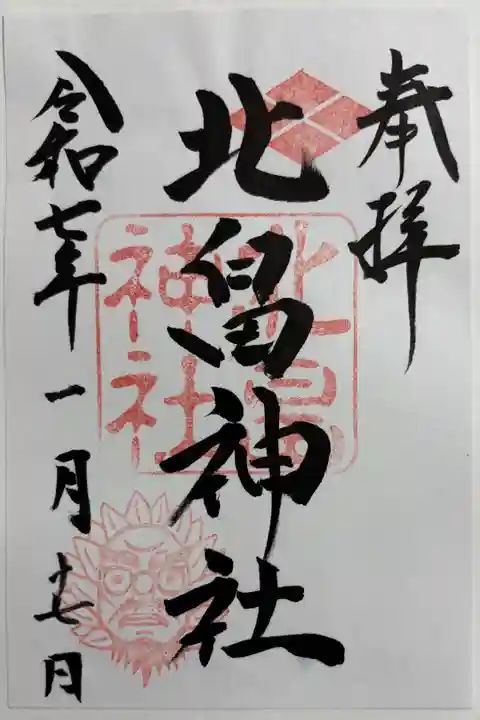 奉拝
北畠神社
令和七年一月十七日
北畠
神社